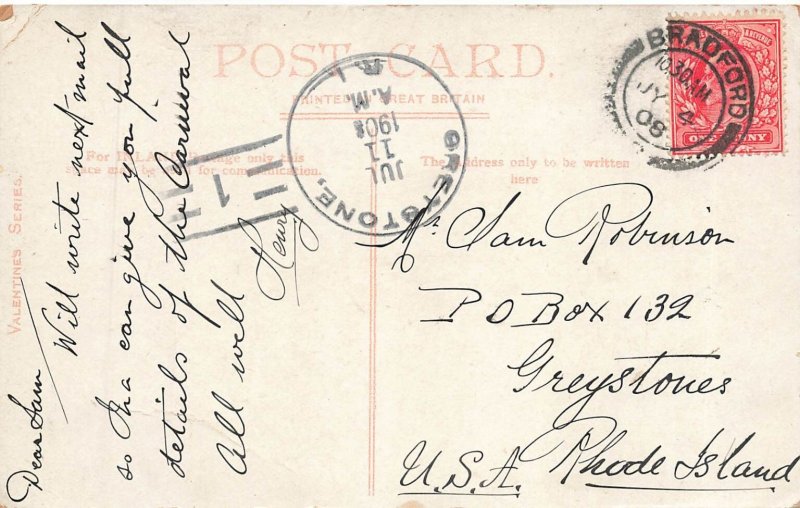 POST CARD.
PRINTED IN GREAT BRITAIN
For INLAND Postage only this
space may be used for communication.
The Address only to be written
here
VALENTINE'S SERIES.
BRADFORD
10.30 AM
JY 4
08
ONE PENNY
GREYSTONE,
R.I.
JUL
11
A.M.
1908
1
Dear Sam
Will write next mail
so tha can give you full
details of the Carnival
All well
Henry
Mr Sam Robinson
P O Box 132
Greystones
U.S.A. Rhode Island